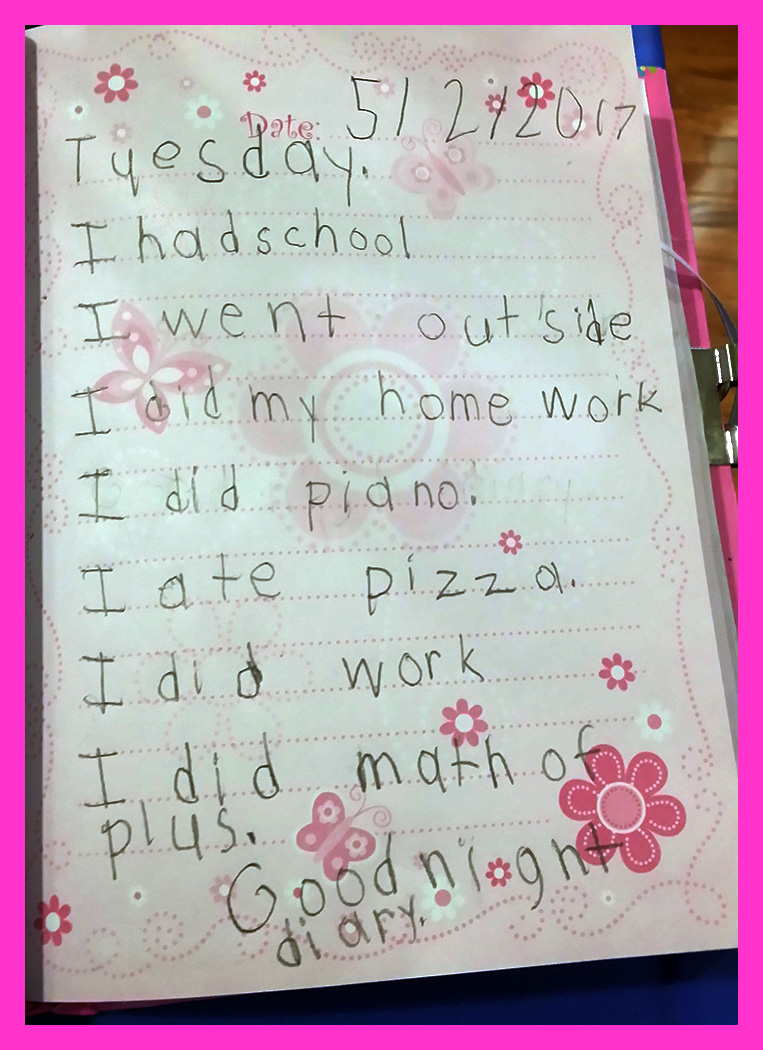 Date: 5/2/2017
Tuesday.
I had school
I went outside
I did my home work
I did piano.
I ate pizza.
I did work
I did math of
plus.
Good night
diary.